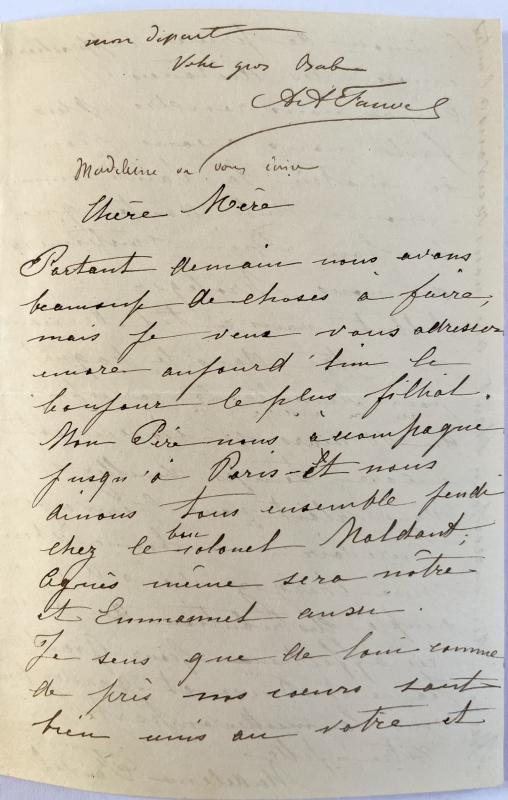 mon départ
Votre gros Bab
Madeleine va vous écrire
Chère Mère
Partant demain nous avons
beaucoup de choses à faire,
mais je veux vous adresser
encore aujourd'hui le
bonjour le plus filhial.
Mon Père nous accompagne
jusqu'à Paris - et nous
dinons tous ensemble jeudi
chez le bon colonel Maldant;
Agnès même sera nôtre
et Emmanuel aussi.
Je sens que de loin comme
de près nos coeurs sont
bien unis au votre et